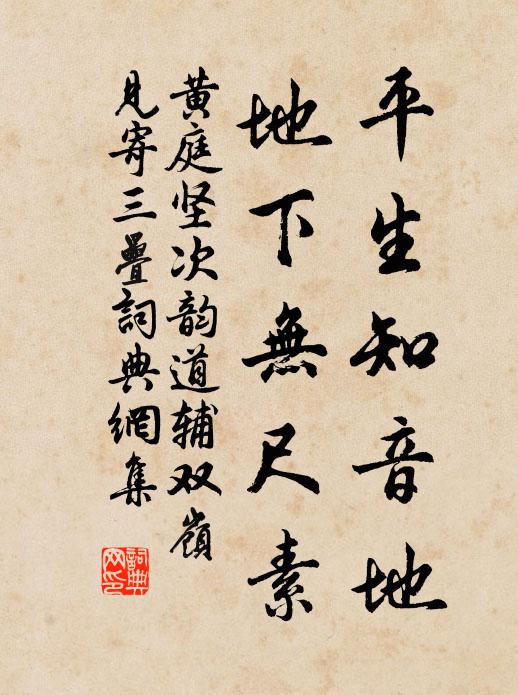 平生知音地
地下無尺素
黄庭坚次韵道辅双嶺
見寄三疊詞典網集
詞典网印